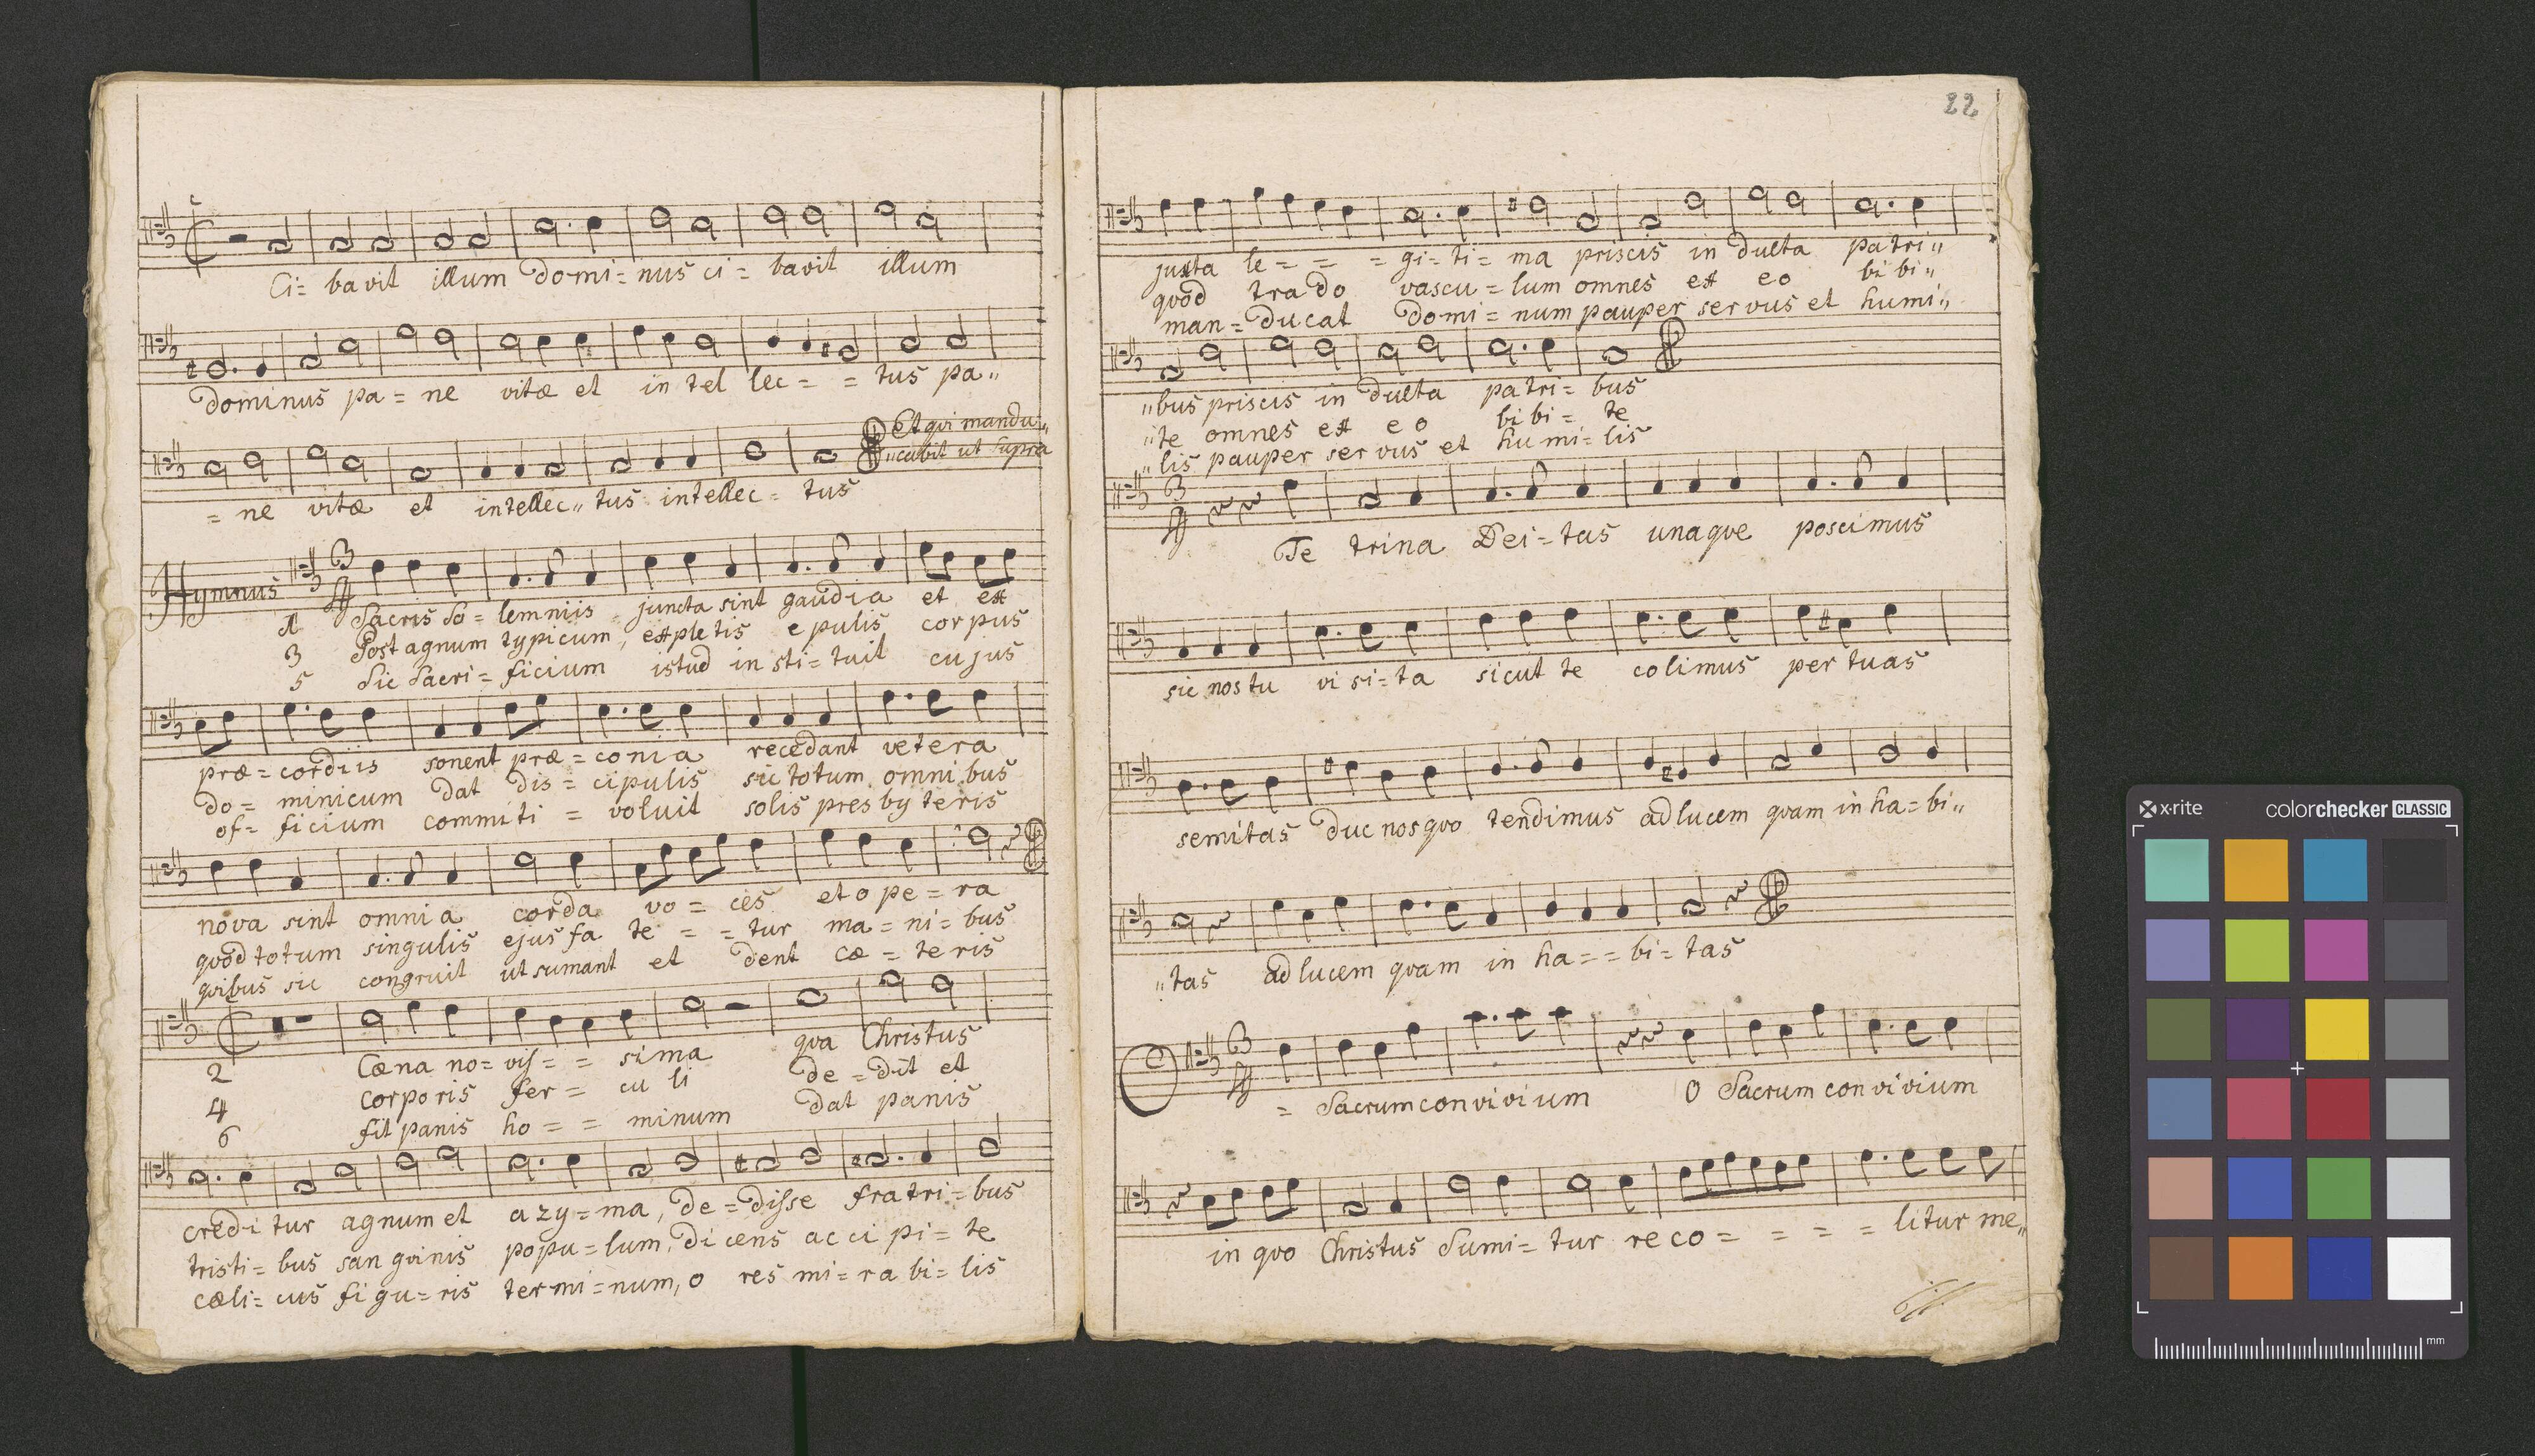 Ci= bavit illum domi=nus ci= bavit illum
dominus pa=ne vitæ et in tel lec= =tus pa"
Et qui mandu"
"cabit ut supra
=ne vitæ et intellec"tus intellec=tus
Hymnus
1 Sacris so=lemniis juncta sint gaudia et ex
3 Post agnum typicum, expletis epulis corpus
5 Sic sacri=ficium istud insti=tuit cujus
præ=cordiis sonent præ=conia recedant vetera
do= minicum dat dis=cipulis sic totum omnibus
of= ficium committi = voluit solis presbyteris
nova sint omnia corda vo=ces et ope=ra
quod totum singulis ejus fa te= =tur ma=ni=bus
quibus sic congruit ut sumant et dent cæ=teris
2 Cœna no=vis= =sima qua Christus
4 corporis fer= cu li de=dit et
6 fit panis ho= = minum dat panis
credi tur agnum et azy=ma, de=disse fratri=bus
tristi=bus sanguinis popu=lum, dicens accipi=te
cæli=cus figu=ris termi=num, o res mi=rabi=lis
22
juxta le= = =gi=ti=ma priscis in dulta patri"
quod trado vascu=lum omnes ex eo bibi"
man=ducat domi=num pauper servus et humi"
"bus priscis in dulta patri=bus
"te omnes ex eo bibi= te
"lis pauper servus et humi=lis
Te trina Dei=tas unaque poscimus
sic nos tu visi=ta sicut te colimus per tuas
semitas duc nos quo tendimus ad lucem quam in ha=bi"
"tas ad lucem quam in ha= =bi=tas
O = Sacrum convivium O Sacrum convivium
in quo Christus Sumi=tur reco= = = =litur me"
x·rite
colorchecker CLASSIC
mm